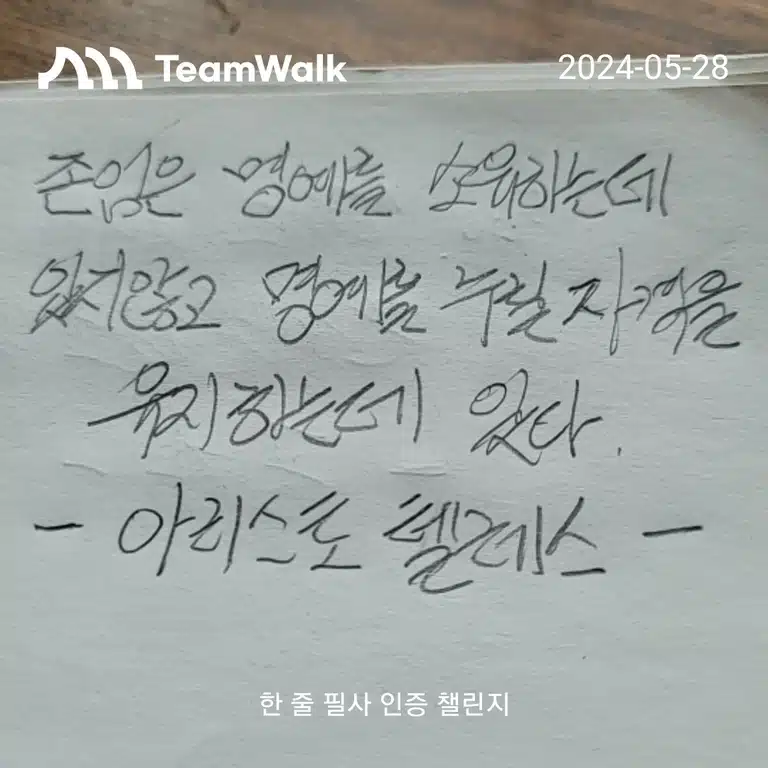 TeamWalk
2024-05-28
존엄은 명예를 소유하는데
있지않고 명예를 누릴 자격을
유지하는데 있다.
- 아리스토텔레스 -
한 줄 필사 인증 챌린지